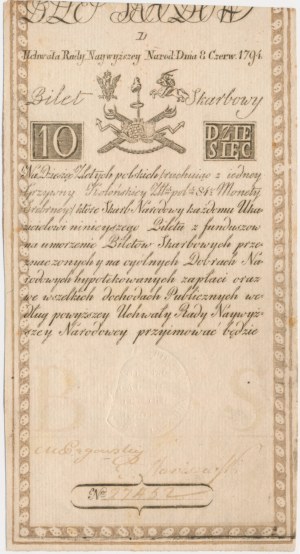 D
Uchwała Rady Naywyższey Narod. Dnia 8. Czerw. 1794.
Bilet Skarbowy
10 DZIE
SIĘĆ
Na Dziesięć Złotych polskich rachuiąc z iedney
Grzywny Kolońskiey Złł. pol. 84½ Monety
Srebrney, które Skarb Narodowy każdemu Oka-
zicielowi ninieyszego Biletu z funduszow
na umorzenie Biletow Skarbowych prze-
znaczonych y na ogólnych Dobrach Na-
rodowych hypotekowanych zapłaci oraz
we wszelkich dochodach Publicznych we-
dług powyższey Uchwały Rady Naywyż-
szey Narodowey przyimować będzie
B S
No